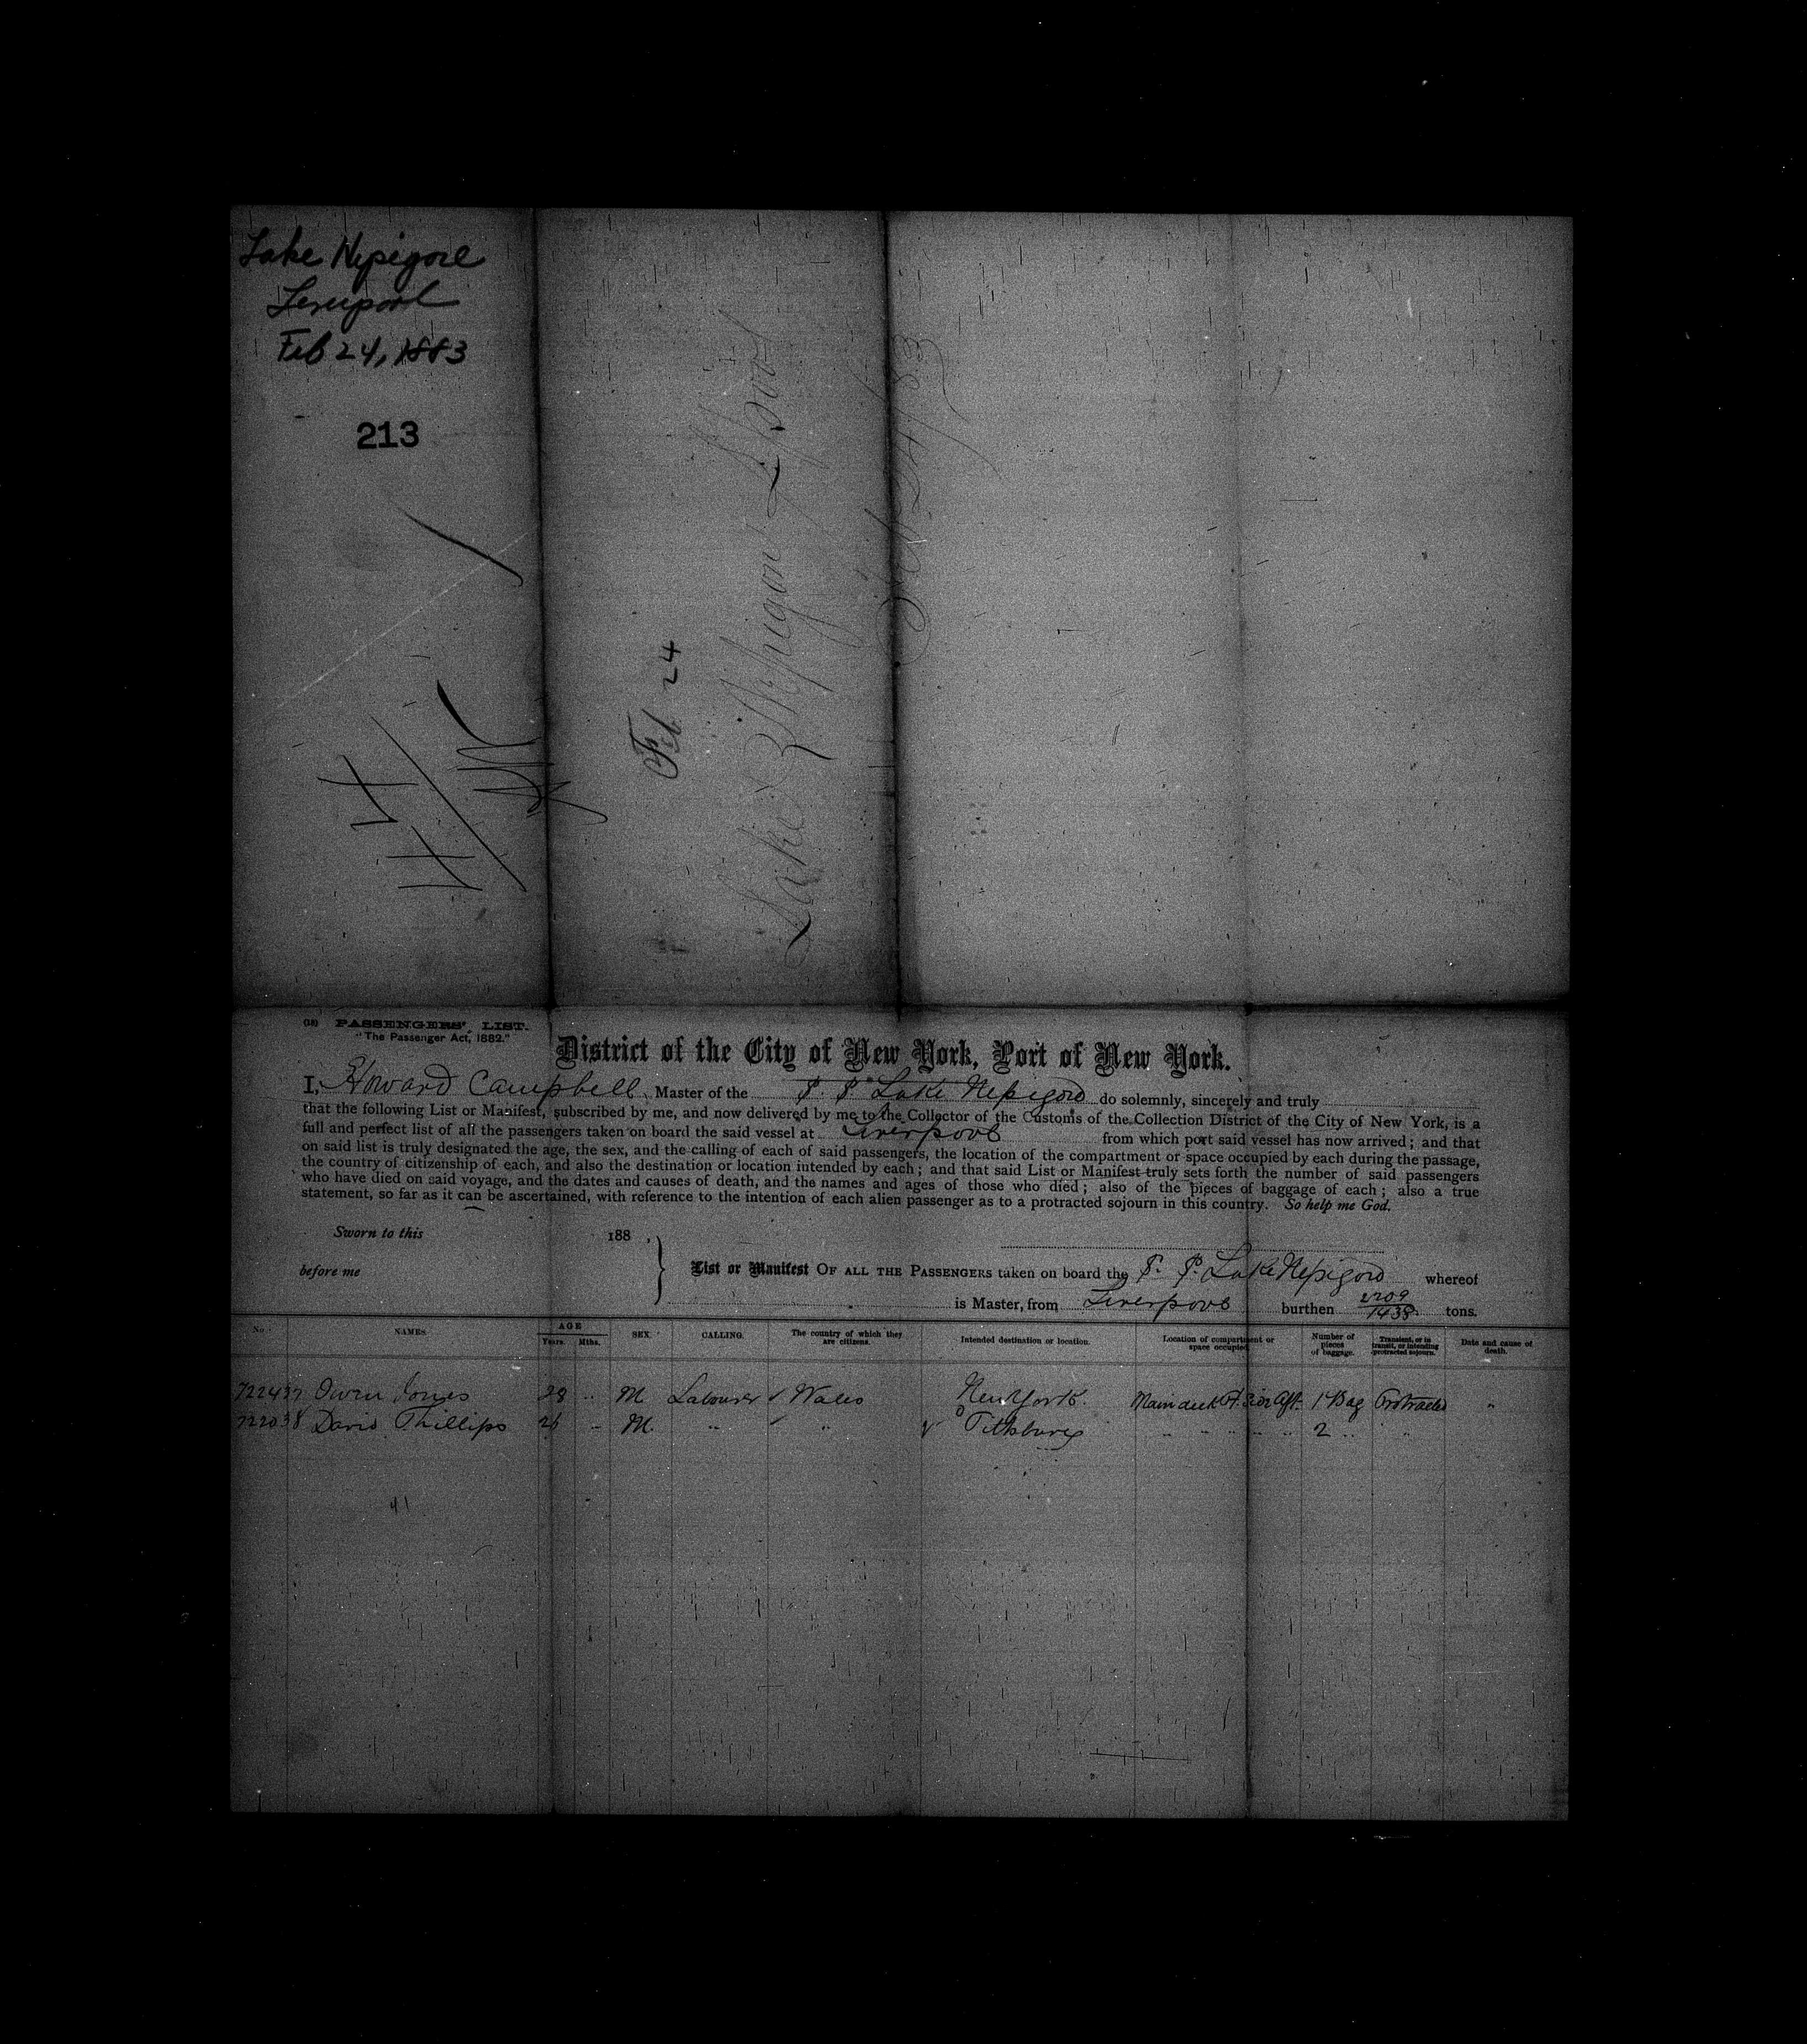 Lake Nepigore
Liverpool
Feb 24, 1883
213
Feb 24
Lake Nepigon L'pool
Feb 24/83
(18) PASSENGERS' LIST.
"The Passenger Act, 1882."
District of the City of New York, Port of New York.
I, Howard Campbell, Master of the S. S. Lake Nepigon do solemnly, sincerely and truly
that the following List or Manifest, subscribed by me, and now delivered by me to the Collector of the Customs of the Collection District of the City of New York, is a
full and perfect list of all the passengers taken on board the said vessel at Liverpool from which port said vessel has now arrived; and that
on said list is truly designated the age, the sex, and the calling of each of said passengers, the location of the compartment or space occupied by each during the passage,
the country of citizenship of each, and also the destination or location intended by each; and that said List or Manifest truly sets forth the number of said passengers
who have died on said voyage, and the dates and causes of death, and the names and ages of those who died; also of the pieces of baggage of each; also a true
statement, so far as it can be ascertained, with reference to the intention of each alien passenger as to a protracted sojourn in this country. So help me God.
Sworn to this 188 ,
before me
List or Manifest OF ALL THE PASSENGERS taken on board the S. S. Lake Nepigon whereof
is Master, from Liverpool burthen 2209 / 1438 tons.
No. NAMES. AGE Years. Mths. SEX. CALLING. The country of which they are citizens. Intended destination or location. Location of compartment or space occupied. Number of pieces of baggage. Transient, or in transit, or intending protracted sojourn. Date and cause of death.
722437 Owen Jones 28 " M Labourer Wales New York. Main deck Aft. 1 Bag Protracted "
722038 David Phillips 26 " M. " " Pittsburg " " " " 2 " "
41